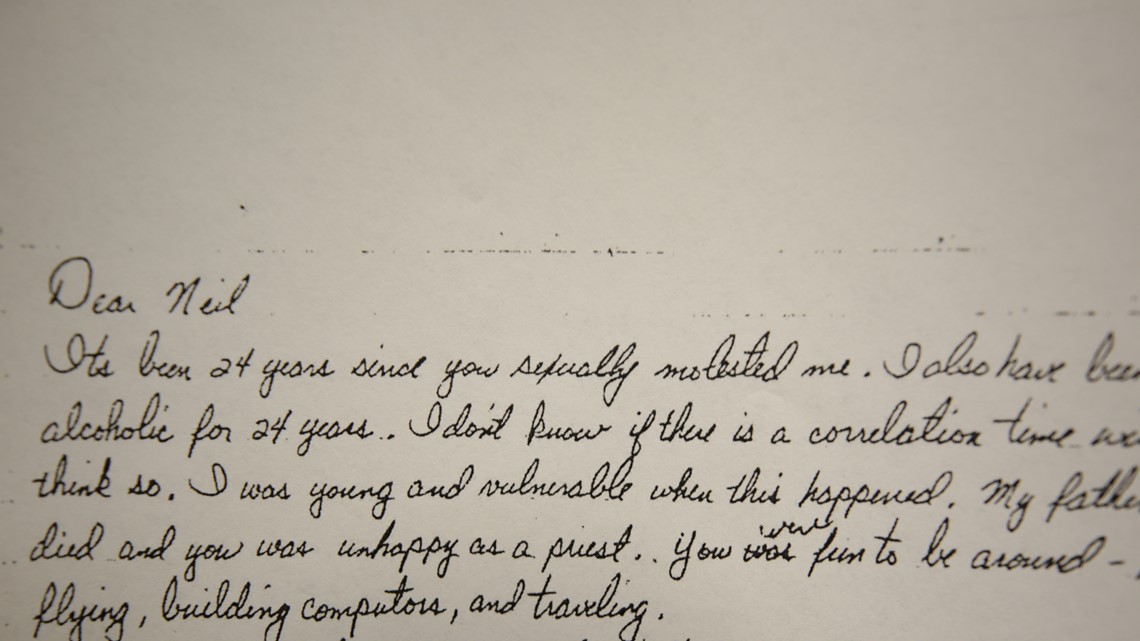 Dear Neil
Its been 24 years since you sexually molested me. I also have been
alcoholic for 24 years.. I don't know if there is a correlation time
think so. I was young and vulnerable when this happened. My father
died and you was unhappy as a priest.. You were fun to be around -
flying, building computors, and traveling.